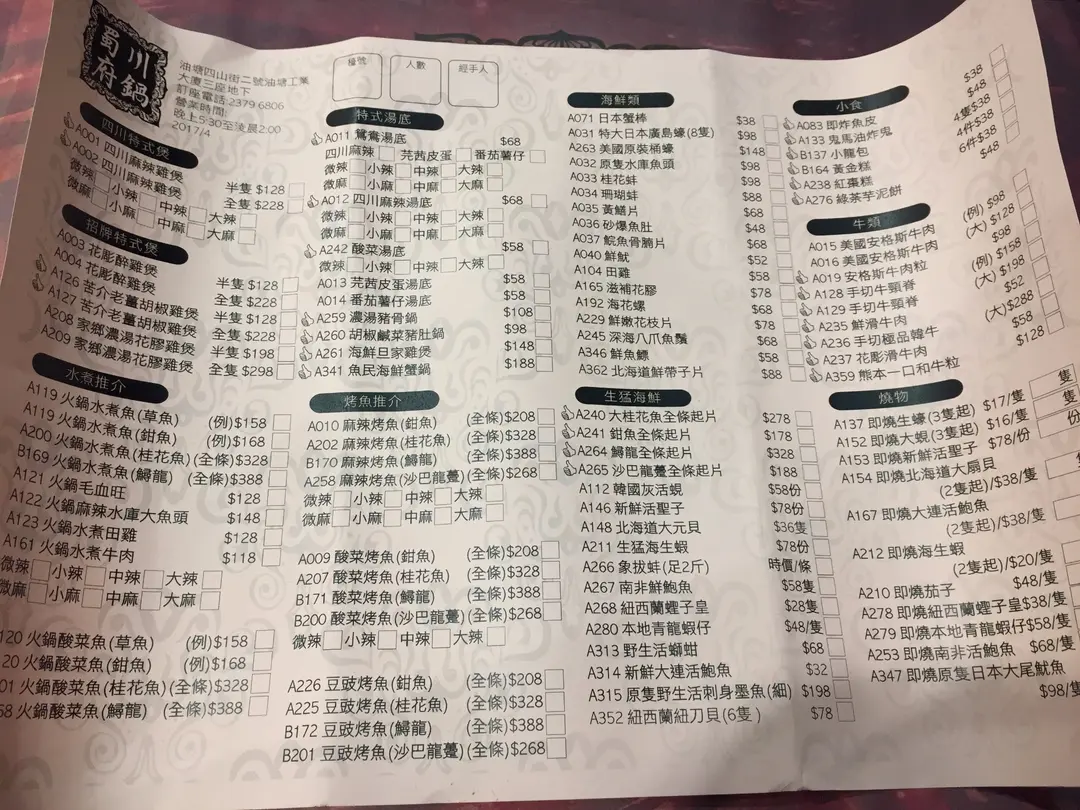 蜀川府鍋
油塘四山街二號油塘工業
大廈三座地下
訂座電話:2379 6806
營業時間:
晚上5:30至淩晨2:00
2017/4
檯號
人數
經手人
四川特式煲
A001 四川麻辣雞煲 半隻 $128
A002 四川麻辣雞煲 全隻 $228
微辣 小辣 中辣 大辣
微麻 小麻 中麻 大麻
招牌特式煲
A003 花彫醉雞煲 半隻 $128
A004 花彫醉雞煲 全隻 $228
A126 苦介老薑胡椒雞煲 半隻 $128
A127 苦介老薑胡椒雞煲 全隻 $228
A208 家鄉濃湯花膠雞煲 半隻 $198
A209 家鄉濃湯花膠雞煲 全隻 $298
水煮推介
A119 火鍋水煮魚(草魚) (例)$158
A119 火鍋水煮魚(鉗魚) (例)$168
A200 火鍋水煮魚(桂花魚) (全條)$328
B169 火鍋水煮魚(鱘龍) (全條)$388
A121 火鍋毛血旺 $128
A122 火鍋麻辣水庫大魚頭 $148
A123 火鍋水煮田雞 $128
A161 火鍋水煮牛肉 $118
微辣 小辣 中辣 大辣
微麻 小麻 中麻 大麻
120 火鍋酸菜魚(草魚) (例)$158
20 火鍋酸菜魚(鉗魚) (例)$168
01 火鍋酸菜魚(桂花魚) (全條)$328
68 火鍋酸菜魚(鱘龍) (全條)$388
特式湯底
A011 鴛鴦湯底 $68
四川麻辣 芫茜皮蛋 番茄薯仔
微辣 小辣 中辣 大辣
微麻 小麻 中麻 大麻
A012 四川麻辣湯底 $68
微辣 小辣 中辣 大辣
微麻 小麻 中麻 大麻
A242 酸菜湯底 $58
微辣 小辣 中辣 大辣
A013 芫茜皮蛋湯底 $58
A014 番茄薯仔湯底 $58
A259 濃湯豬骨鍋 $108
A260 胡椒鹹菜豬肚鍋 $98
A261 海鮮旦家雞煲 $148
A341 魚民海鮮蟹鍋 $188
烤魚推介
A010 麻辣烤魚(鉗魚) (全條)$208
A202 麻辣烤魚(桂花魚) (全條)$328
B170 麻辣烤魚(鱘龍) (全條)$388
A258 麻辣烤魚(沙巴龍躉) (全條)$268
微辣 小辣 中辣 大辣
微麻 小麻 中麻 大麻
A009 酸菜烤魚(鉗魚) (全條)$208
A207 酸菜烤魚(桂花魚) (全條)$328
B171 酸菜烤魚(鱘龍) (全條)$388
B200 酸菜烤魚(沙巴龍躉) (全條)$268
微辣 小辣 中辣 大辣
A226 豆豉烤魚(鉗魚) (全條)$208
A225 豆豉烤魚(桂花魚) (全條)$328
B172 豆豉烤魚(鱘龍) (全條)$388
B201 豆豉烤魚(沙巴龍躉) (全條)$268
海鮮類
A071 日本蟹棒 $38
A031 特大日本廣島蠔(8隻) $98
A263 美國原裝桶蠔 $148
A032 原隻水庫魚頭 $98
A033 桂花蚌 $98
A034 珊瑚蚌 $88
A035 黃鱔片 $68
A036 砂爆魚肚 $48
A037 鯇魚骨腩片 $68
A040 鮮魷 $52
A104 田雞 $58
A165 滋補花膠 $78
A192 海花螺 $68
A229 鮮嫩花枝片 $78
A245 深海八爪魚鬚 $68
A346 鮮魚鰾 $58
A362 北海道鮮帶子片 $88
生猛海鮮
A240 大桂花魚全條起片 $278
A241 鉗魚全條起片 $178
A264 鱘龍全條起片 $328
A265 沙巴龍躉全條起片 $188
A112 韓國灰活蜆 $58份
A146 新鮮活聖子 $78份
A148 北海道大元貝 $36隻
A211 生猛海生蝦 $78份
A266 象拔蚌(足2斤) 時價/條
A267 南非鮮鮑魚 $58隻
A268 紐西蘭蟶子皇 $28隻
A280 本地青龍蝦仔 $48/隻
A313 野生活螄蚶 $68
A314 新鮮大連活鮑魚 $32
A315 原隻野生活刺身墨魚(細) $198
A352 紐西蘭紐刀貝(6隻) $78
小食
A083 即炸魚皮 $38
A133 鬼馬油炸鬼 $48
B137 小籠包 4隻$38
B164 黃金糕 4件$38
A238 紅棗糕 6件$38
A276 綠茶芋泥餅 $48
牛類
A015 美國安格斯牛肉 (例) $98
A016 美國安格斯牛肉 (大) $128
A019 安格斯牛肉粒 $98
A128 手切牛頸脊 (例) $158
A129 手切牛頸脊 (大) $198
A235 鮮滑牛肉 $52
A236 手切極品韓牛 (大)$288
A237 花彫滑牛肉 $58
A359 熊本一口和牛粒 $128
燒物
A137 即燒生蠔(3隻起) $17/隻
A152 即燒大蜆(3隻起) $16/隻
A153 即燒新鮮活聖子 $78/份
A154 即燒北海道大扇貝
(2隻起)/$38/隻
A167 即燒大連活鮑魚
(2隻起)/$38/隻
A212 即燒海生蝦
(2隻起)/$20/隻
A210 即燒茄子 $48/隻
A278 即燒紐西蘭蟶子皇 $38/隻
A279 即燒本地青龍蝦仔 $58/隻
A253 即燒南非活鮑魚 $68/隻
A347 即燒原隻日本大尾魷魚
$98/隻
隻
隻
份